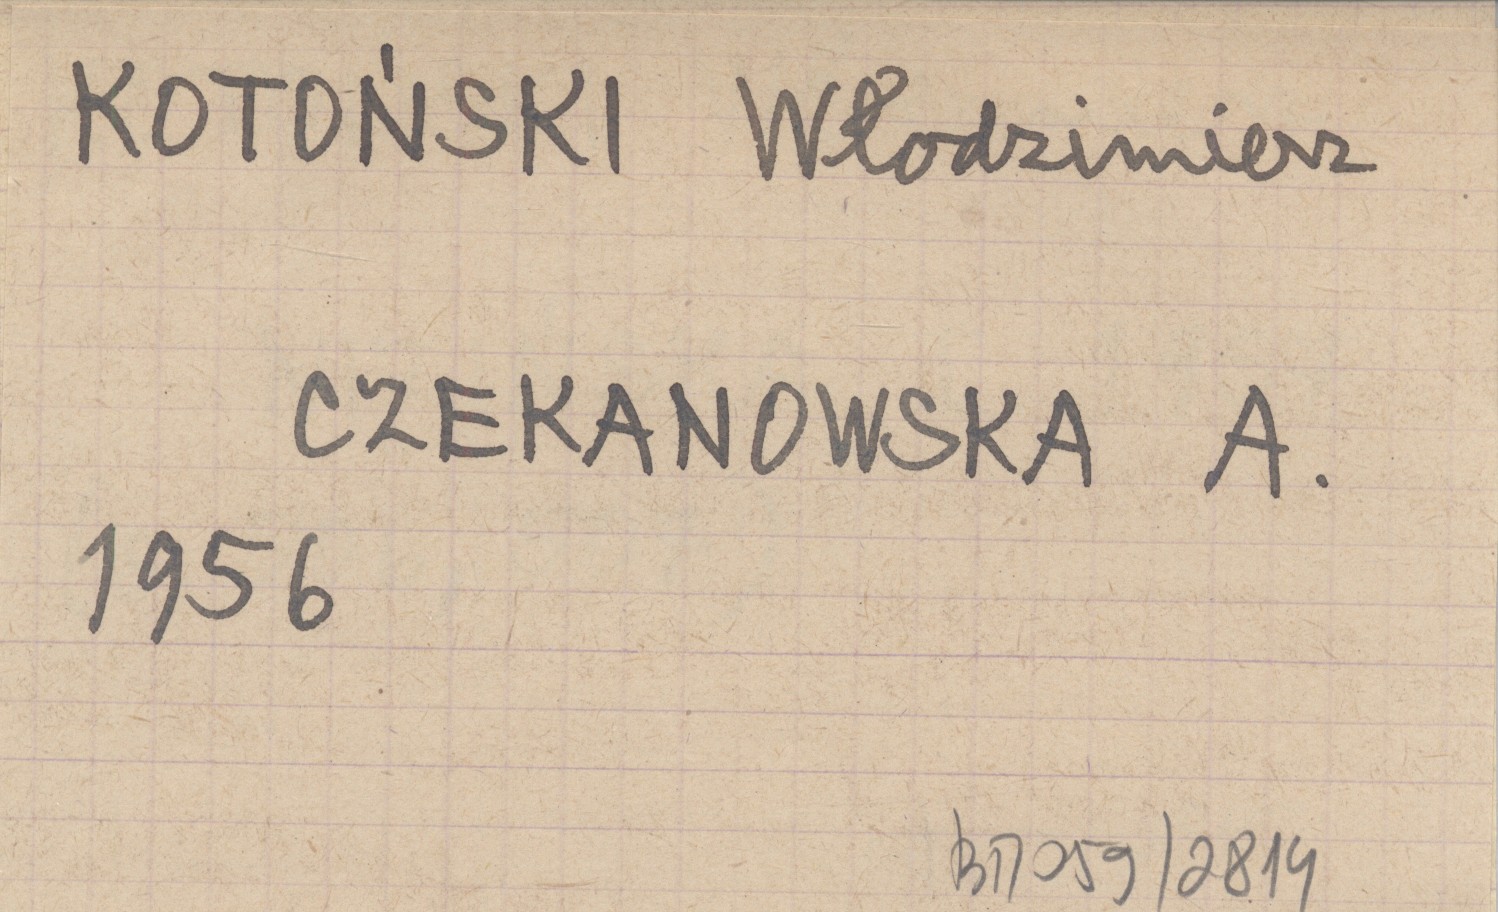 KOTOŃSKI Włodzimierz
CZEKANOWSKA A.
1956
BП059/2814